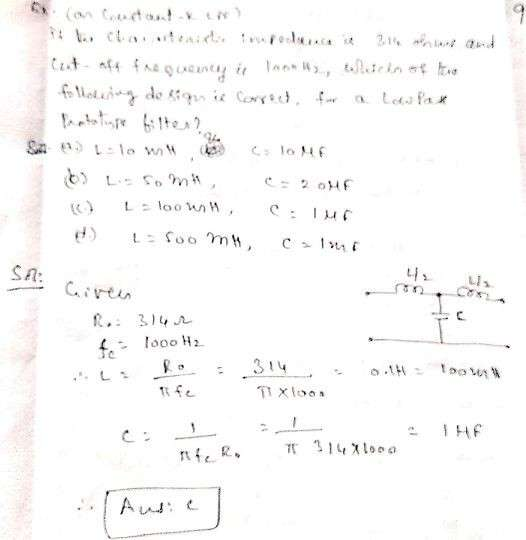 Ex. (on Constant-K LPF)
9
If the characteristic impedance is 314 ohms and
Cut-off frequency is 1000Hz, which of the
following design is correct, for a LowPass
Prototype filter?
(a) L=10 mH, C=10μF
(b) L=50 mH, C=20μF
(c) L=100mH, C=1μF
(d) L=500 mH,
Sol:
Given
R₀= 314Ω
fc= 1000Hz
L/2 L/2
C
∴ L = R₀/πfc = 314/π×1000 = 0.1H = 100mH
C = 1/πfcR₀ = 1/π 314×1000 = 1μF
∴ Ans: c